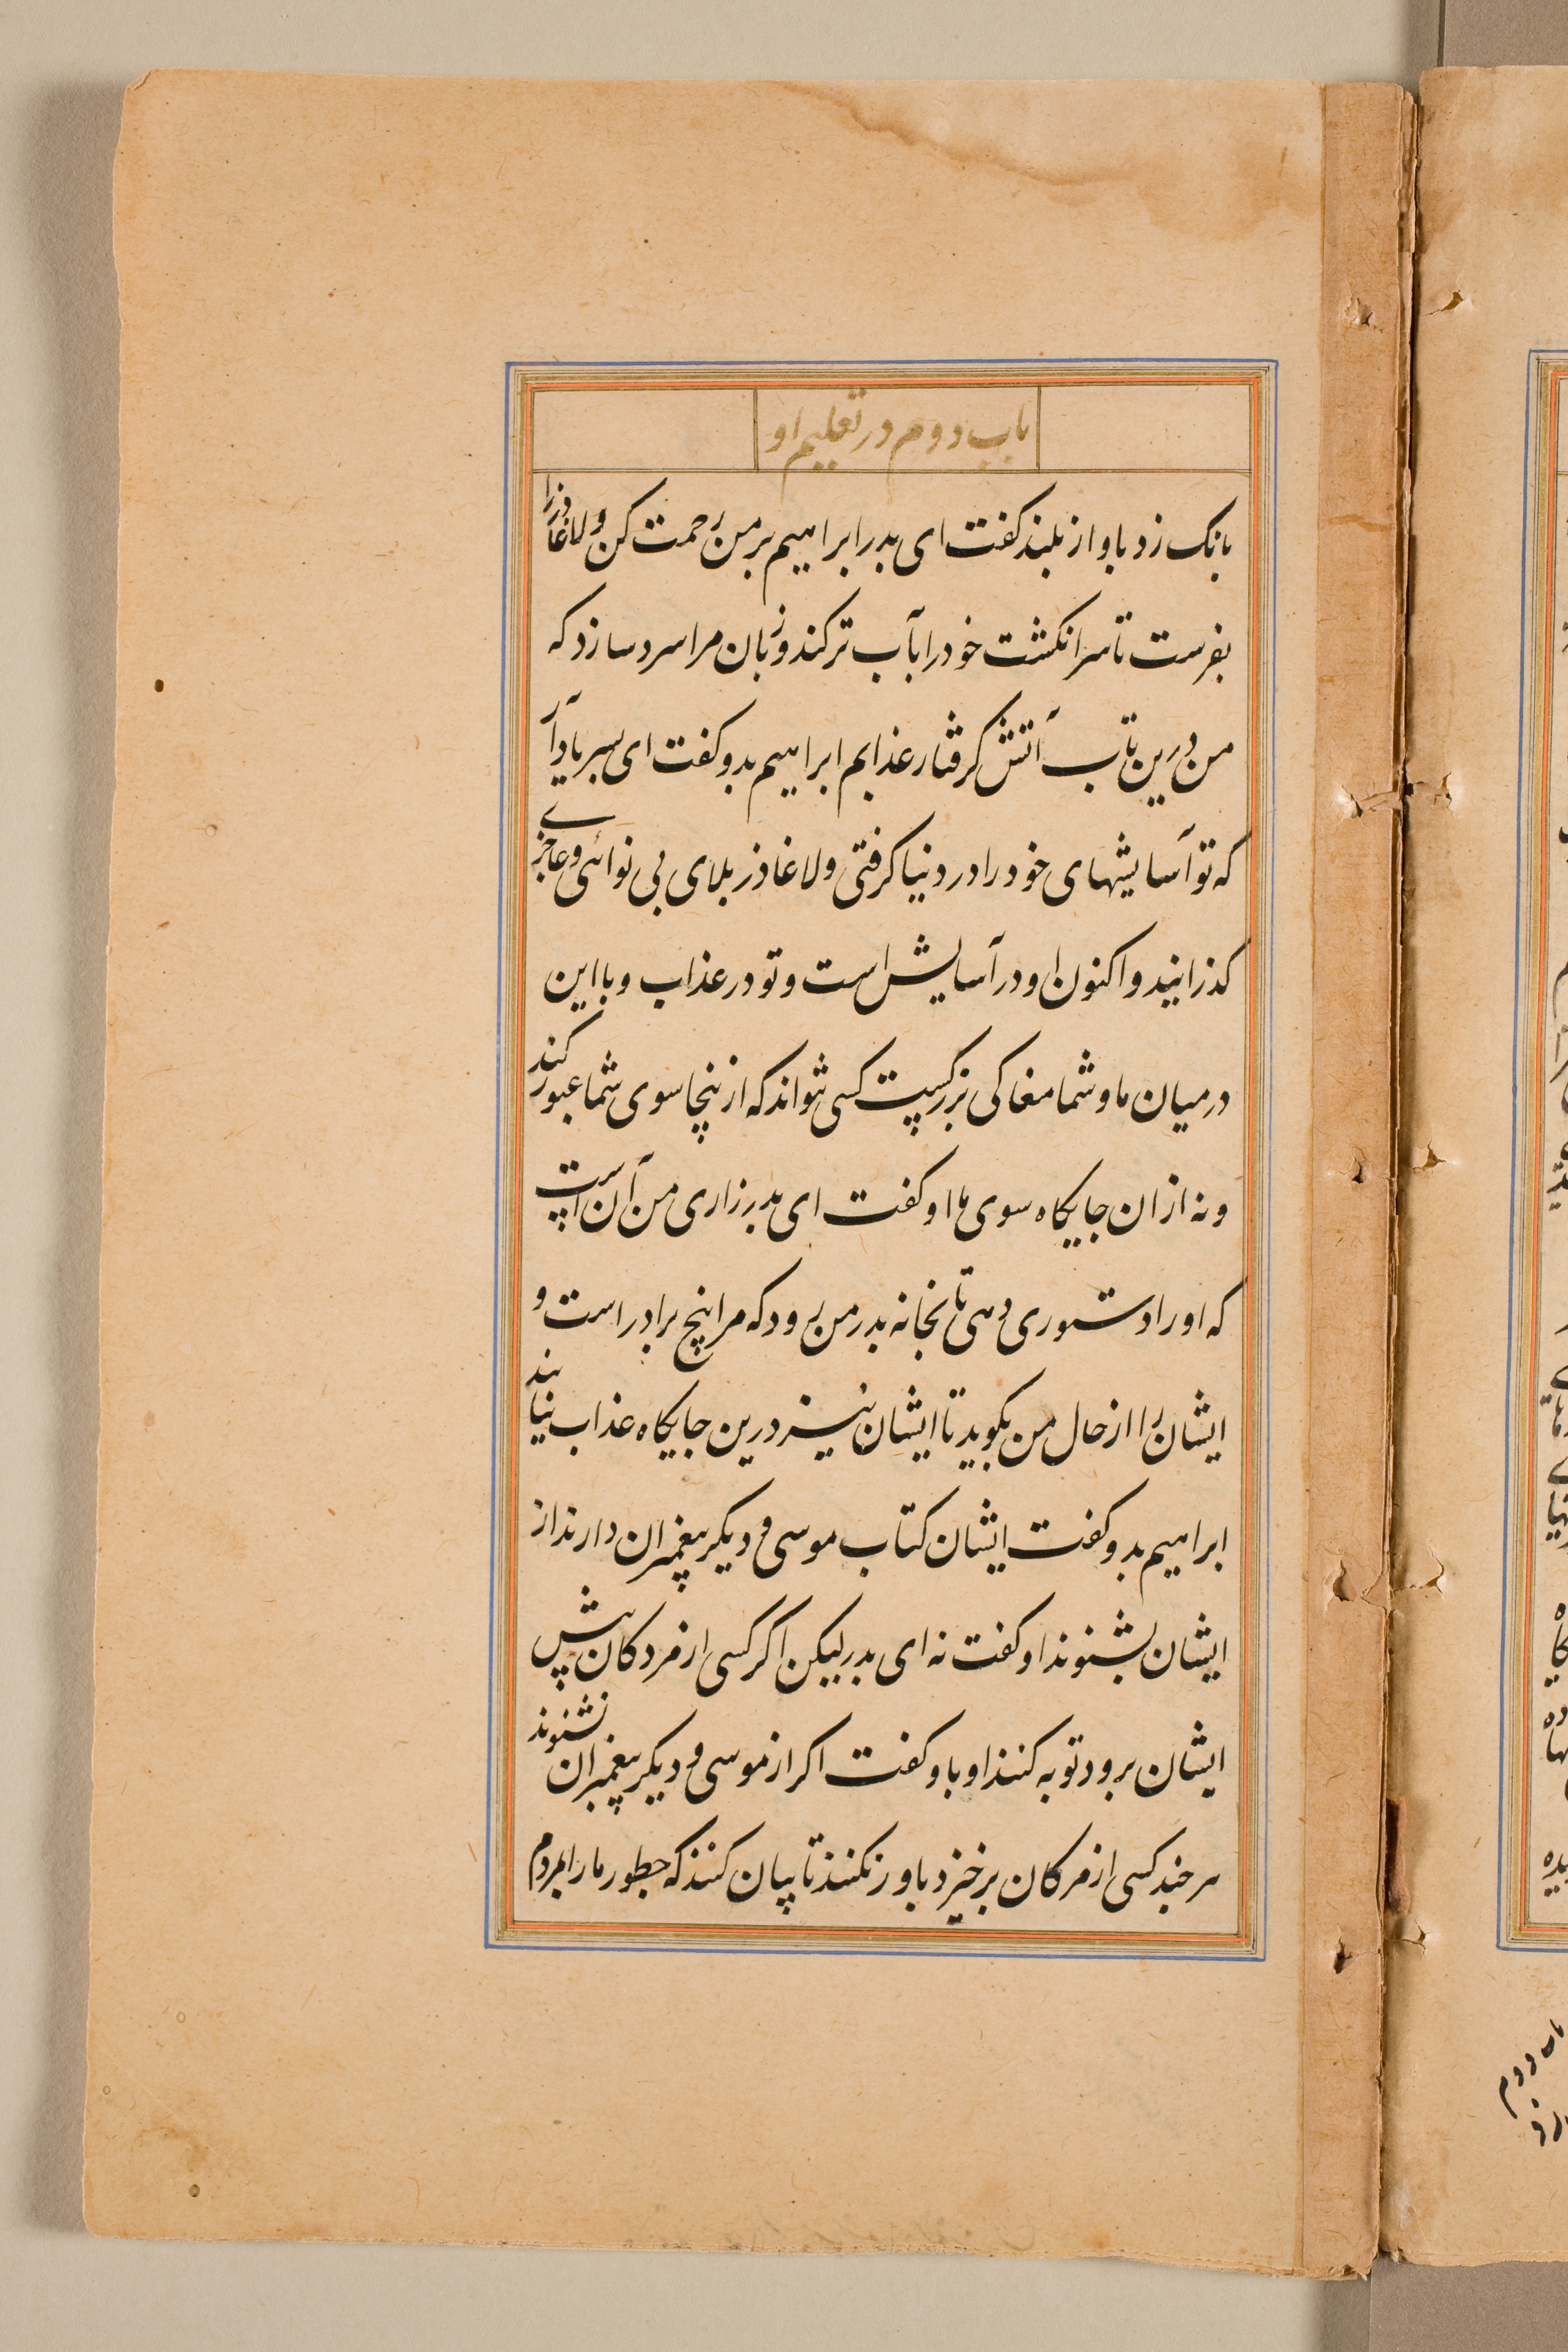 باب دوم در تعلیم او
بانک زد باواز بلند کفت ای پدر ابراهیم بر من رحمت کن و لاغاذر را
بفرست تا سر انکشت خود را بآب تر کند و زبان مرا سرد سازد که
من درین تاب آتش کرفتار عذابم ابراهیم بدو کفت ای پسر یاد آر
که تو آسایشهای خود را در دنیا کرفتی و لاغاذر بلای بی نوائی و عاجزی
کذرانید و اکنون او در آسایش است و تو در عذاب و با این
در میان ما و شما مغاکی بزرکیست کسی نتواند که از ینجا سوی شما عبور کند
و نه از ان جایکاه سوی ما او کفت ای پدر زاری من آن است
که او را دستوری دهی تا بخانه پدر من رود که مرا پنج برادر است و
ایشان را از حال من بکوید تا ایشان نیز درین جایکاه عذاب نیایند
ابراهیم بدو کفت ایشان کتاب موسی و دیکر پیغمبران دارند از
ایشان بشنوند او کفت نه ای پدر لیکن اکر کسی از مردکان پیش
ایشان برود توبه کنند او باو کفت اکر از موسی و دیکر پیغمبران نشنوند
هر چند کسی از مرکان برخیزد باور نکنند تا بیان کنند که چطور ما را بمردم